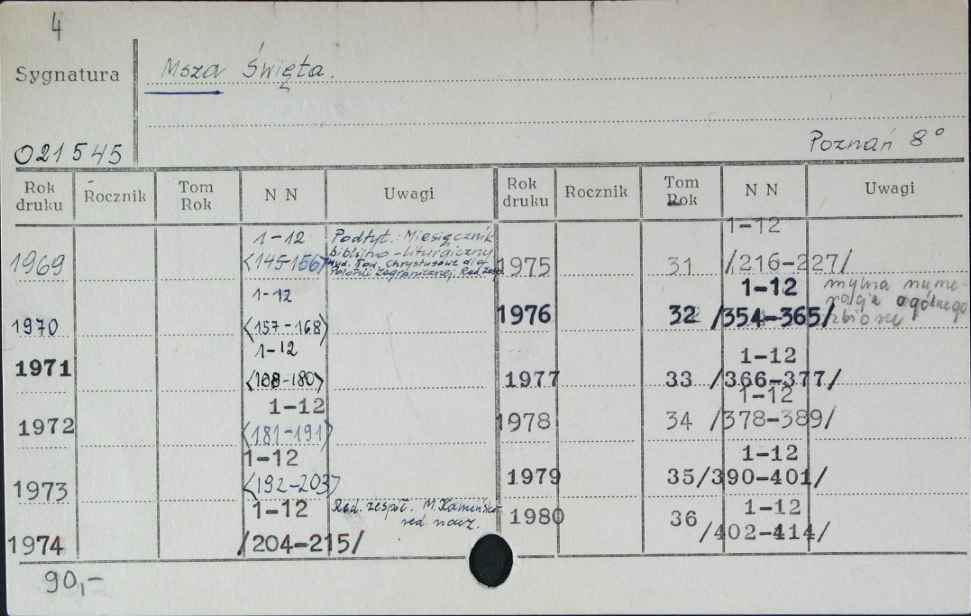 4
Sygnatura Msza Święta.
021545
Poznań 8°
Rok druku Rocznik Tom Rok N N Uwagi Rok druku Rocznik Tom Rok N N Uwagi
1969 1-12 <145-156> Podtyt.: Miesięcznik
biblijno-liturgiczny
Wyd. Tow. Chrystusowe dla
Polonii Zagranicznej. Red. zesp.
1970 1-12 <157-168>
1971 1-12 <168-180>
1972 1-12 <181-191>
1973 1-12 <192-203>
1974 1-12 /204-215/ Red. zespół.
red. nacz.
1975 31 1-12 /216-227/
1976 32 1-12 /354-365/ mylna nume-
racja ogólnego
zbioru
1977 33 1-12 /366-377/
1978 34 1-12 /378-389/
1979 35 1-12 /390-401/
1980 36 1-12 /402-414/
90,-